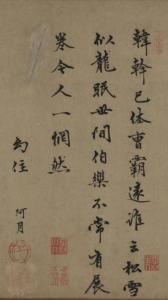 韓幹已體曹霸遠誰云松雪
似龍眠世間伯樂不常有展
卷令人一惘然
阿月